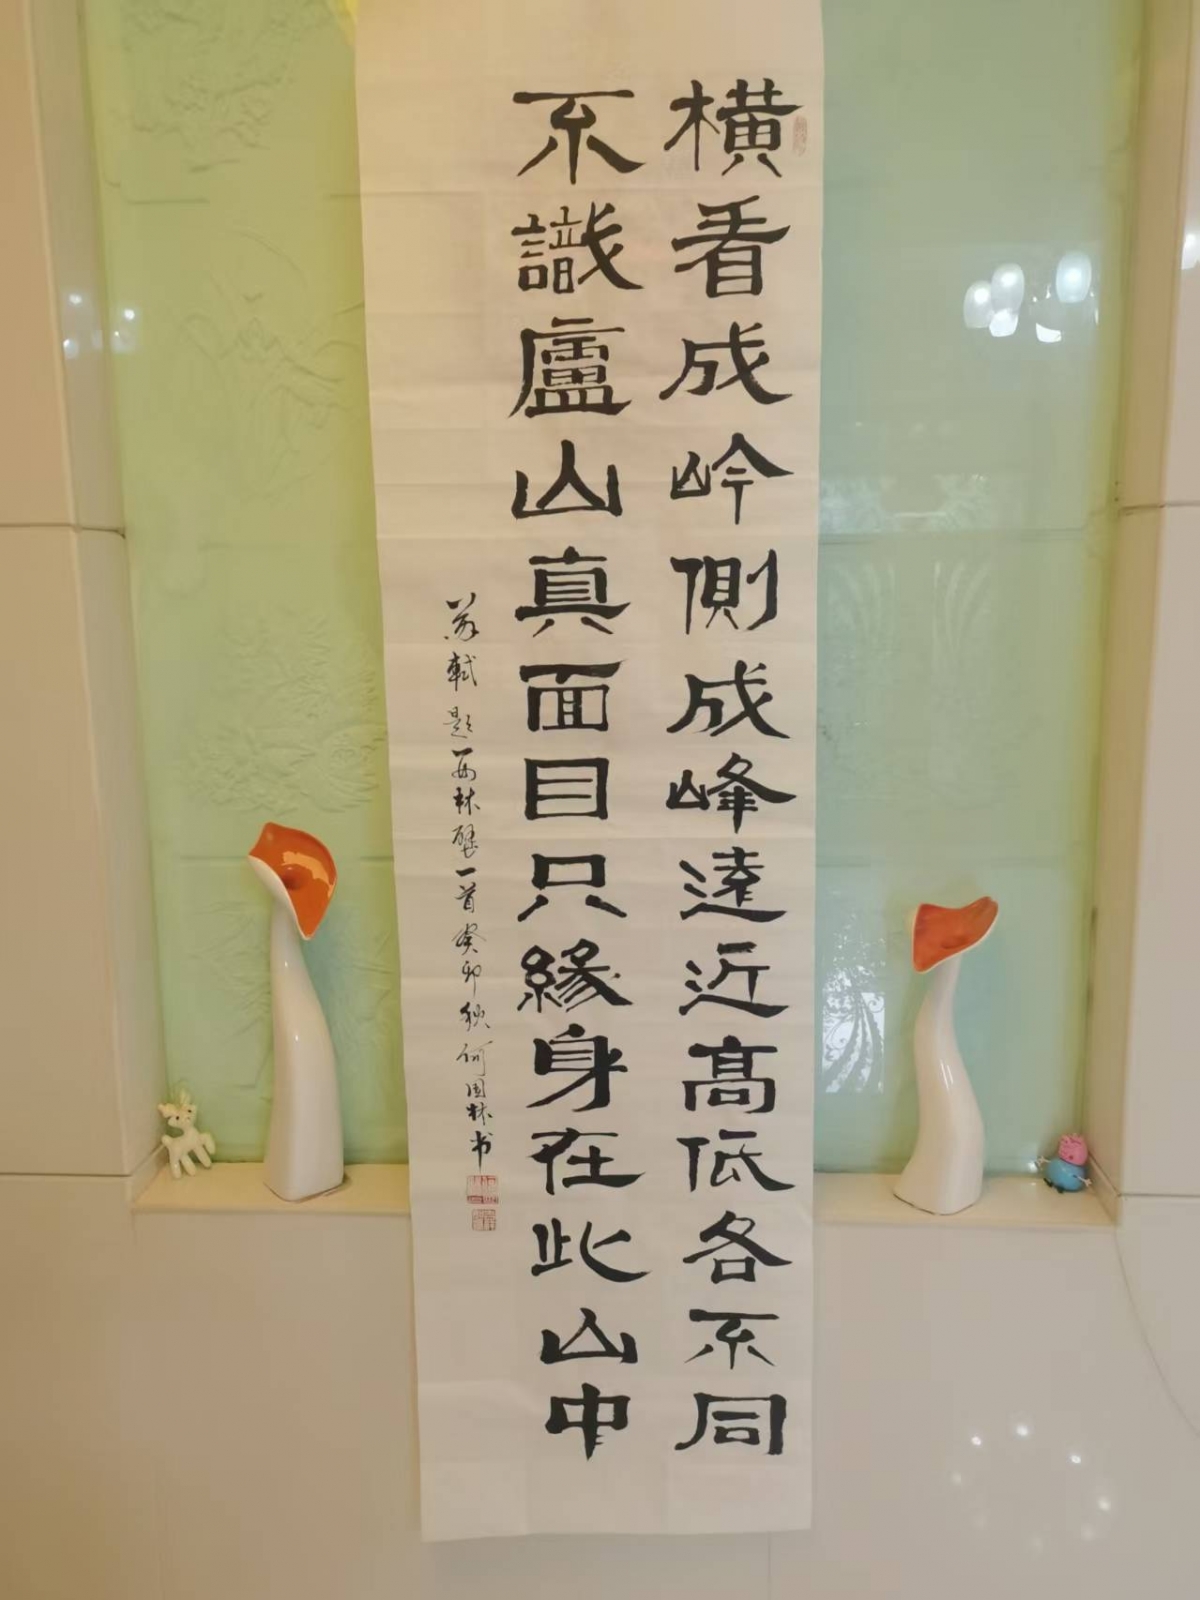 橫看成岭側成峰遠近高低各不同
不識廬山真面目只緣身在此山中
蘇軾題西林壁一首癸卯秋何国林书